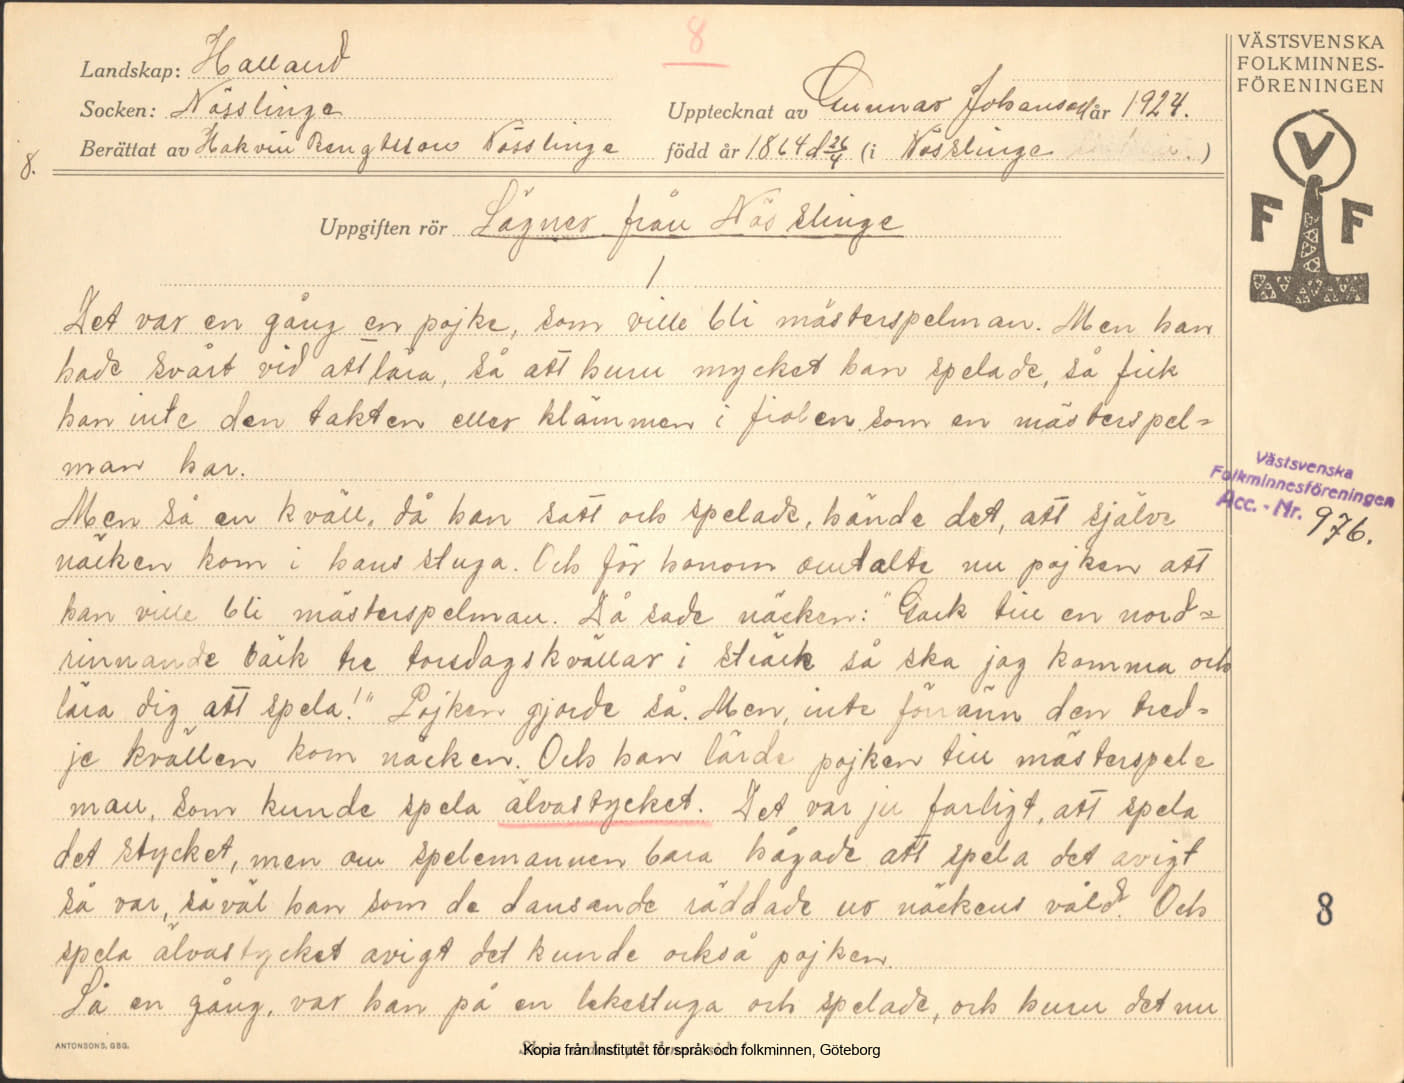 8
Landskap: Halland
Socken: Nösslinge
Upptecknat av Gunnar Johansson år 1924.
Berättat av Hakvin Bengtsson Nösslinge
född år 1864 d 26/4 (i Nösslinge )
8.
VÄSTSVENSKA
FOLKMINNES-
FÖRENINGEN
V
F F
Uppgiften rör Sägner från Nösslinge
1
Det var en gång en pojke, som ville bli mästerspelman. Men han
hade svårt vid att lära, så att huru mycket han spelade, så fick
han inte den takten eller klämmen i fiolen som en mästerspel=
man har.
Men så en kväll, då han satt och spelade, hände det, att själve
näcken kom i hans stuga. Och för honom omtalte nu pojken att
han ville bli mästerspelman. Då sade näcken: "Gack till en nord=
rinnande bäck tre torsdagskvällar i sträck så ska jag komma och
lära dig att spela!" Pojken gjorde så. Men, inte förränn den tred=
je kvällen kom näcken. Och han lärde pojken till mästerspele
man, som kunde spela älvastycket. Det var ju farligt, att spela
det stycket, men om spelemannen bara hågade att spela det avigt
så var, såväl han som de dansande räddade ur näckens våld. Och
spela älvastycket avigt det kunde också pojken.
Så en gång, var han på en lekestuga och spelade, och huru det nu
Västsvenska
Folkminnesföreningen
Acc. - Nr. 976.
8
ANTONSONS, GBG.
Kopia från Institutet för språk och folkminnen, Göteborg